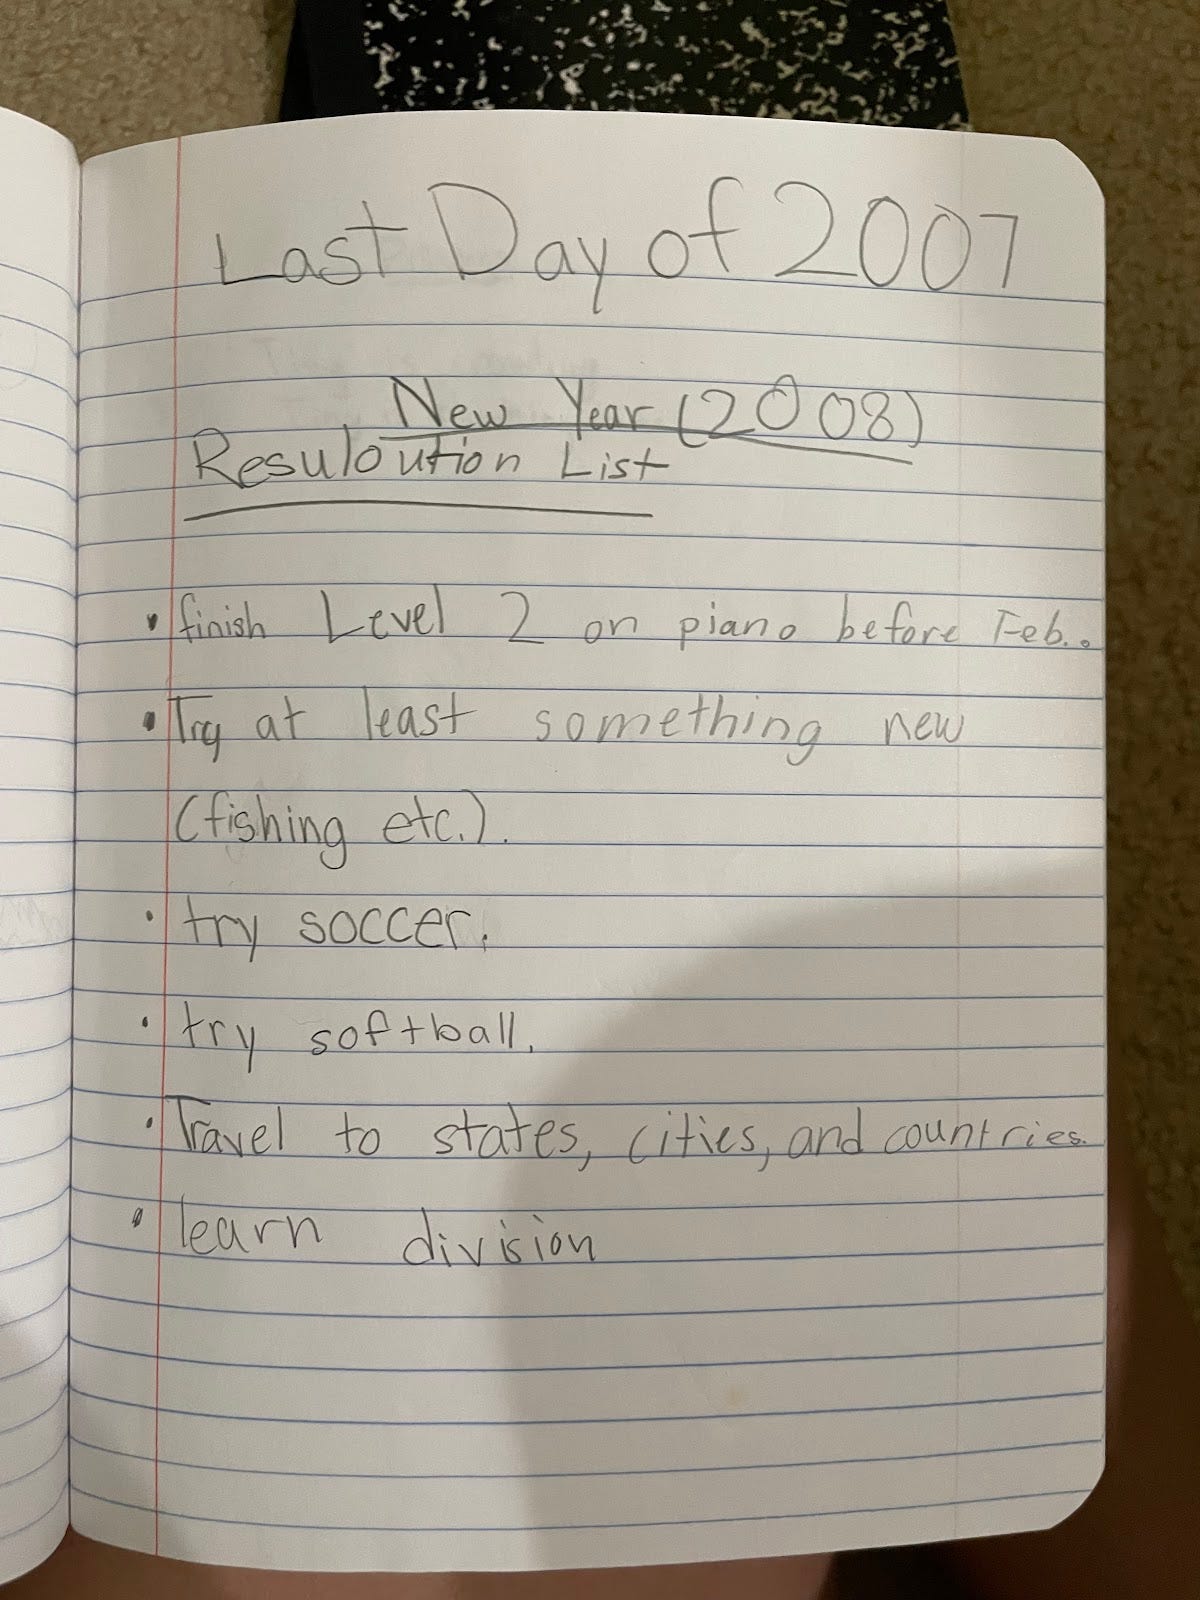 Last Day of 2007
New Year (2008)
Resuloution List
• finish Level 2 on piano before Feb..
• Try at least something new
(fishing etc.).
• try soccer.
• try softball.
• Travel to states, cities, and countries.
• learn division